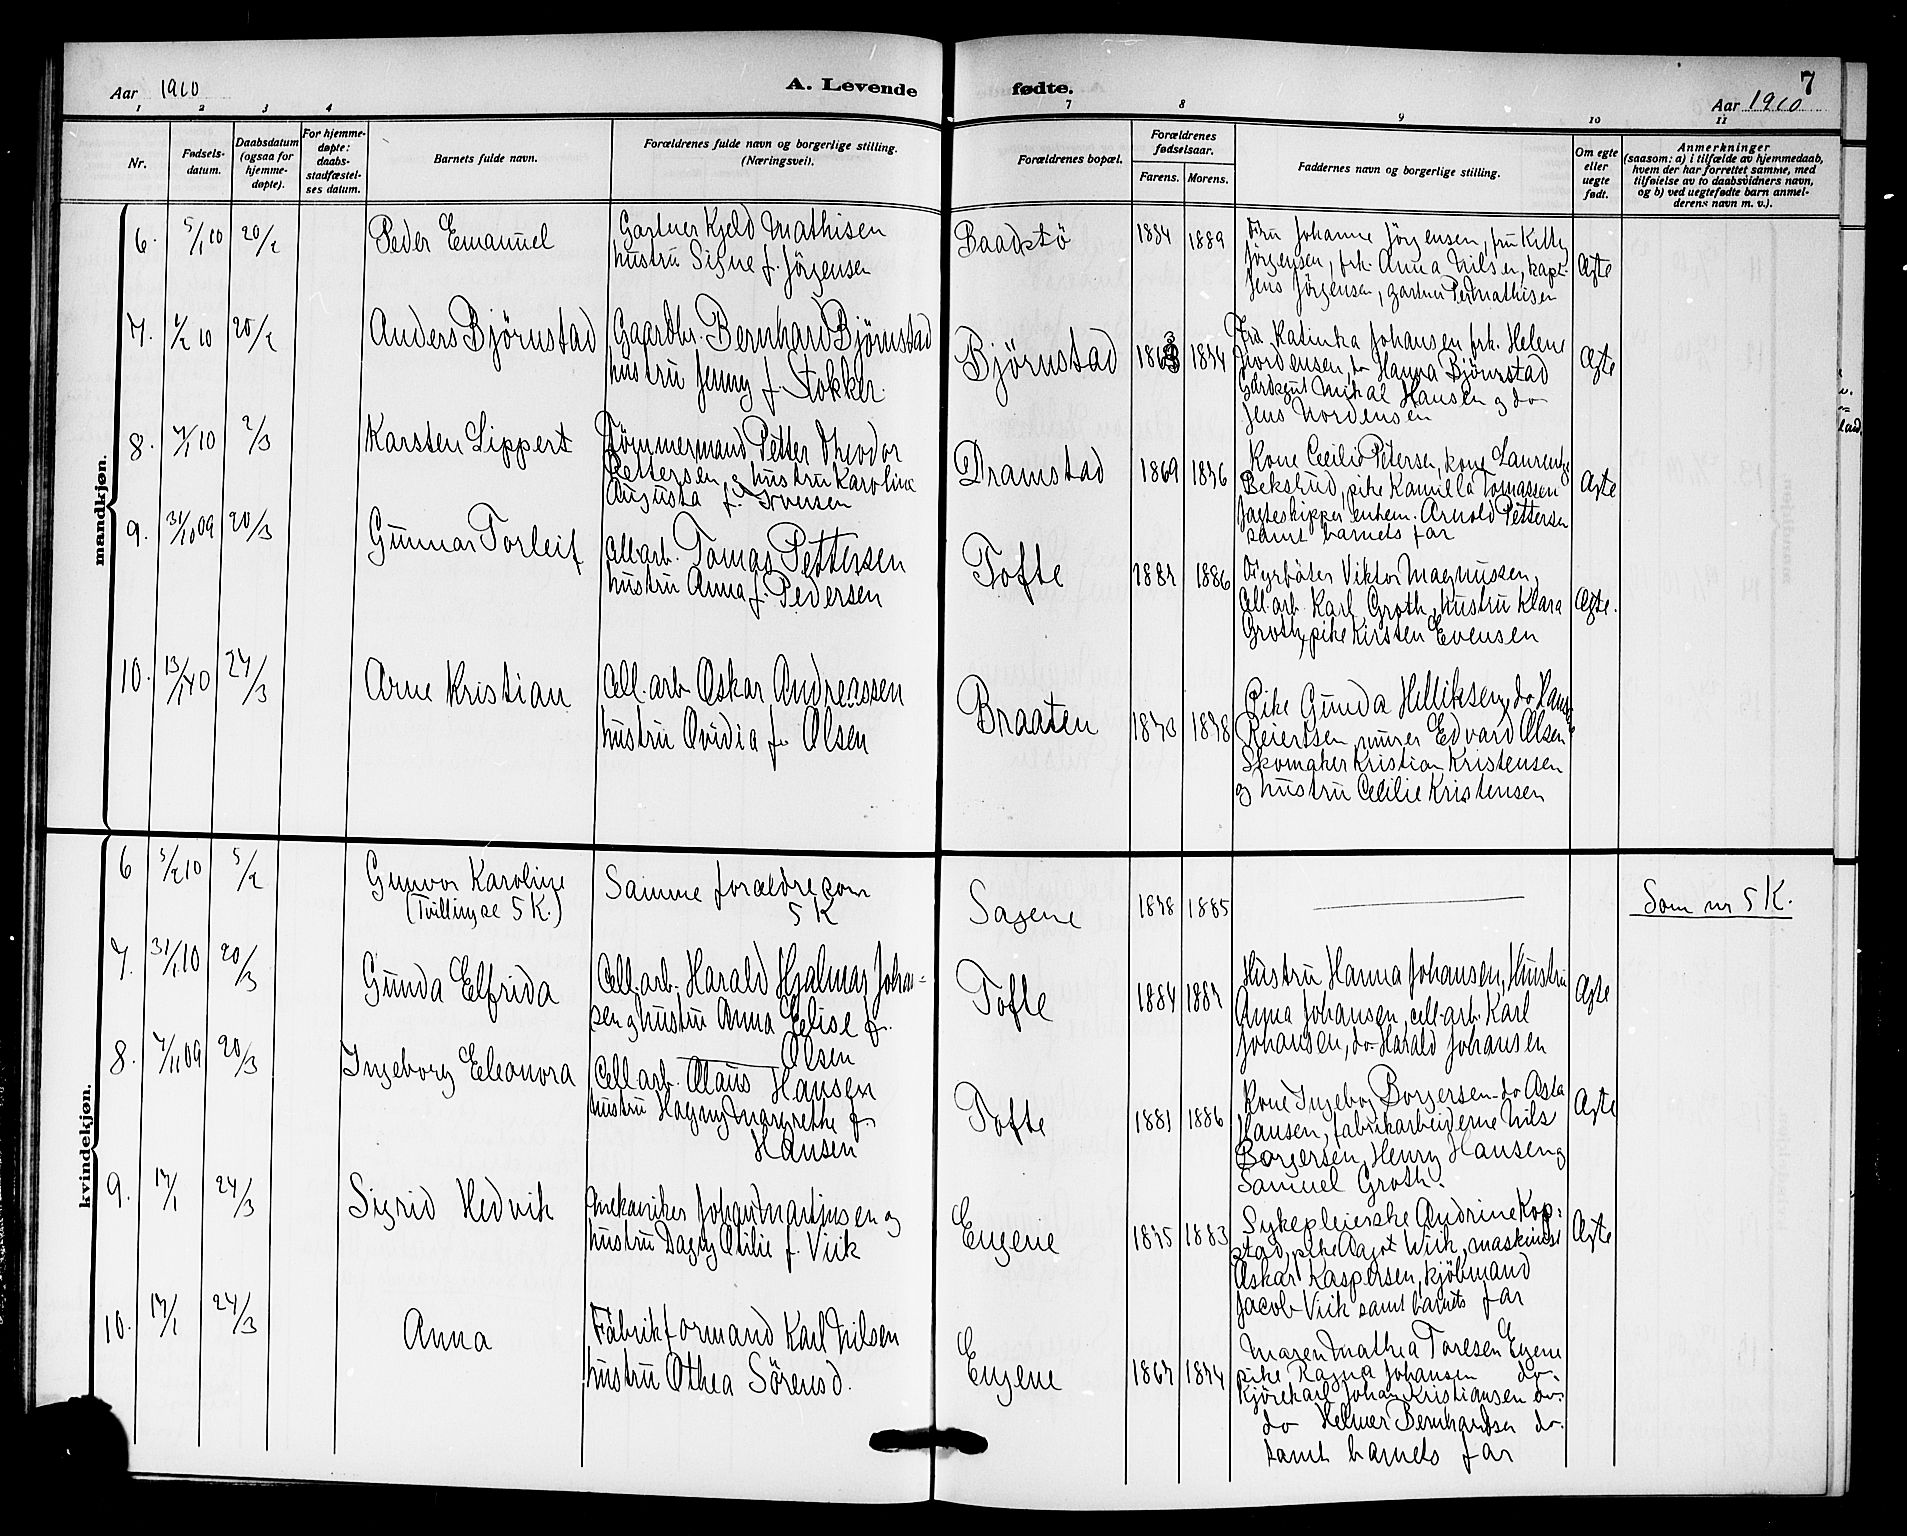 Aar 1910
A. Levende
fødte.
7
Aar 1910
1 2 3 4 7 8 9 10 11
Nr.
Fødsels-
datum.
Daabsdatum
(ogsaa for
hjemme-
døpte).
For hjemme-
døpte:
daabs-
stadfæstel-
ses datum.
Barnets fulde navn.
Forældrenes fulde navn og borgerlige stilling.
(Næringsvei).
Forældrenes bopæl.
Forældrenes
fødselsaar.
Farens. Morens.
Faddernes navn og borgerlige stilling.
Om egte
eller
uegte
født.
Anmerkninger
(saasom: a) i tilfælde av hjemmedaab,
hvem der har forrettet samme, med
tilføielse av to daabsvidners navn,
og b) ved uegtefødte barn anmel-
derens navn m. v.).
mandkjøn.
6. 5/1 10 20/2 Peder Emanuel
Gartner Kjeld Mathisen
hustru Signe f. Jörgensen
Baadstö 1884 1889
Fru Johanne Jörgensen, fru Kitty
Jörgensen, frk. Anna Nilsen, kapt.
Jens Jörgensen, gartner Per Mathisen
Ægte
7. 4/2 10 20/2 Anders Björnstad
Gaardbr. Bernhard Björnstad
hustru Jenny f. Stokker
Björnstad 1874
Fru Katinka Johansen frk. Helene
Nordensen, do Hanna Björnstad
Mikal Hansen og do
Jens Nordensen
Ægte
8. 7/1 10 2/3 Karsten Lippert
Tömmermand Petter Theodor
Pettersen og hustru Karoline
Augusta f. Iversen
Dramstad 1869 1876
Kone Cecilie Petersen, kone Laurentze
Bekslud, pike Kamilla Tomassen
Jagteskipper enkem. Arnold Pettersen
samt barnets far
Ægte
9. 31/10 09 20/3 Gunnar Torleif
Cell.arb. Tomas Pettersen
hustru Anna f. Pedersen
Tofte 1887 1886
Fyrböter Viktor Magnussen,
Cell.arb. Karl Groth, hustru Klara
Groth, pike Kirsten Evensen
Ægte.
10. 13/1 10 24/3 Arne Kristian
Cell.arb Oskar Andreassen
hustru Ovidia f. Olsen
Braaten 1873 1878
Pike Gunda Hilliksen, do Hansine
Reierssen, murer Edvard Olsen
Skomaker Kristian Kristensen
og hustru Cecilie Kristensen
kvindekjøn.
6 5/2 10 5/2 Gunvor Karoline
(Tvilling se 5 K.)
Samme forældre som
5 K
Sagene 1878 1885
Som nr 5 K.
7. 31/1 10 20/3 Gunda Elfrida
Cell.arb. Harald Hjalmar Johan-
sen og hustru Anna Elise f.
Olsen
Tofte 1884 1887
Hustru Hanna Johansen, Hustru
Anna Johansen, cell.arb. Karl
Johansen, do Harald Johansen
Ægte
8. 7/11 09 20/3 Ingeborg Eleonora
Cell arb. Olaus Hansen
hustru Hagny Margrethe f.
Hansen
Tofte 1881 1886
Kone Ingebor Borgersen do Asta
Hansen, fabrikarbeiderne Nils
Borgersen, Henry Hansen og
Samuel Groth.
Ægte
9. 17/1 24/3 Sigrid Hedvik
mekaniker Johan Martinsen og
hustru Dagny Otilie f. Viik
Engene 1875 1883
Sykepleierske Andrine Kop-
stad, pike Aagot Wiik, maskinist
Oskar Kaspersen, kjöbmand
Jacob Viik samt barnets far
Ægte
10. 17/1 24/3 Anna
Fabrikformand Karl Nilsen
hustru Othea Sörensd.
Engene 1867 1874
Maren Mathea Toresen Engene
pike Ragna Johansen do.
Kjörekarl Johan Kristiansen do.
do Helmer Bernhardsen do.
samt barnets far